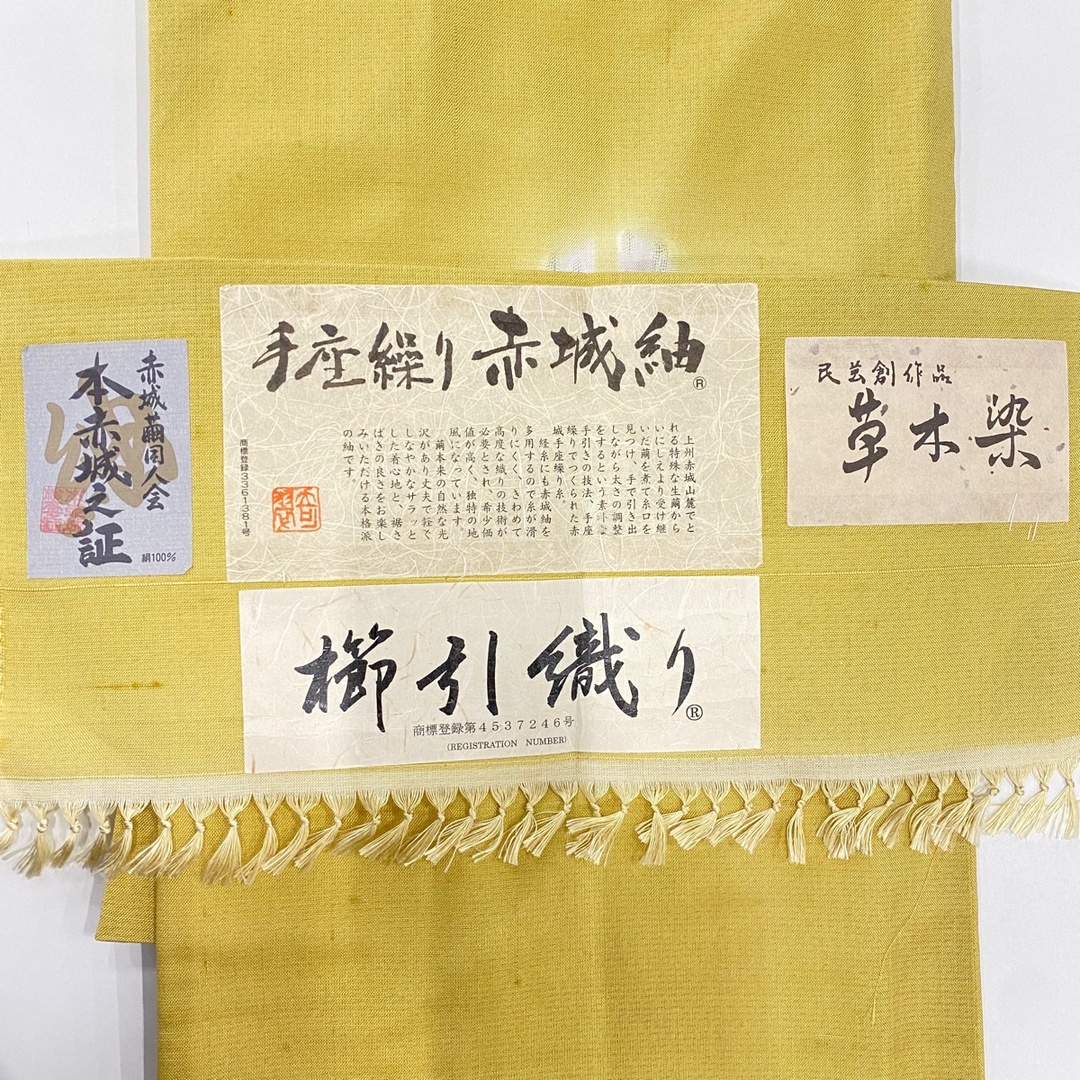 手座繰り赤城紬®
上州赤城山麓でと
れる特殊な生繭から
いにしえより受け継
いだ繭を煮て糸口を
見つけ、手で引き出
しながら太さの調整
をするという素朴な
手引きの技法、手座
繰りでつくられた赤
城手座繰り糸。
経糸にも赤城紬を
多用するので糸が滑
りにくく、きわめて
高度な織りの技術が
必要とされ、希少価
値が高く、独特の地
風になっています。
繭本来の自然な光
沢があり丈夫で
しなやかなサラッと
した着心地と、裾さ
ばきの良さをお楽し
みいただける本格派
の紬です。
商標登録3361381号
赤城繭同人会
本赤城之証
絹100%
民芸創作品
草木染
櫛引織り®
商標登録第4537246号
(REGISTRATION NUMBER)